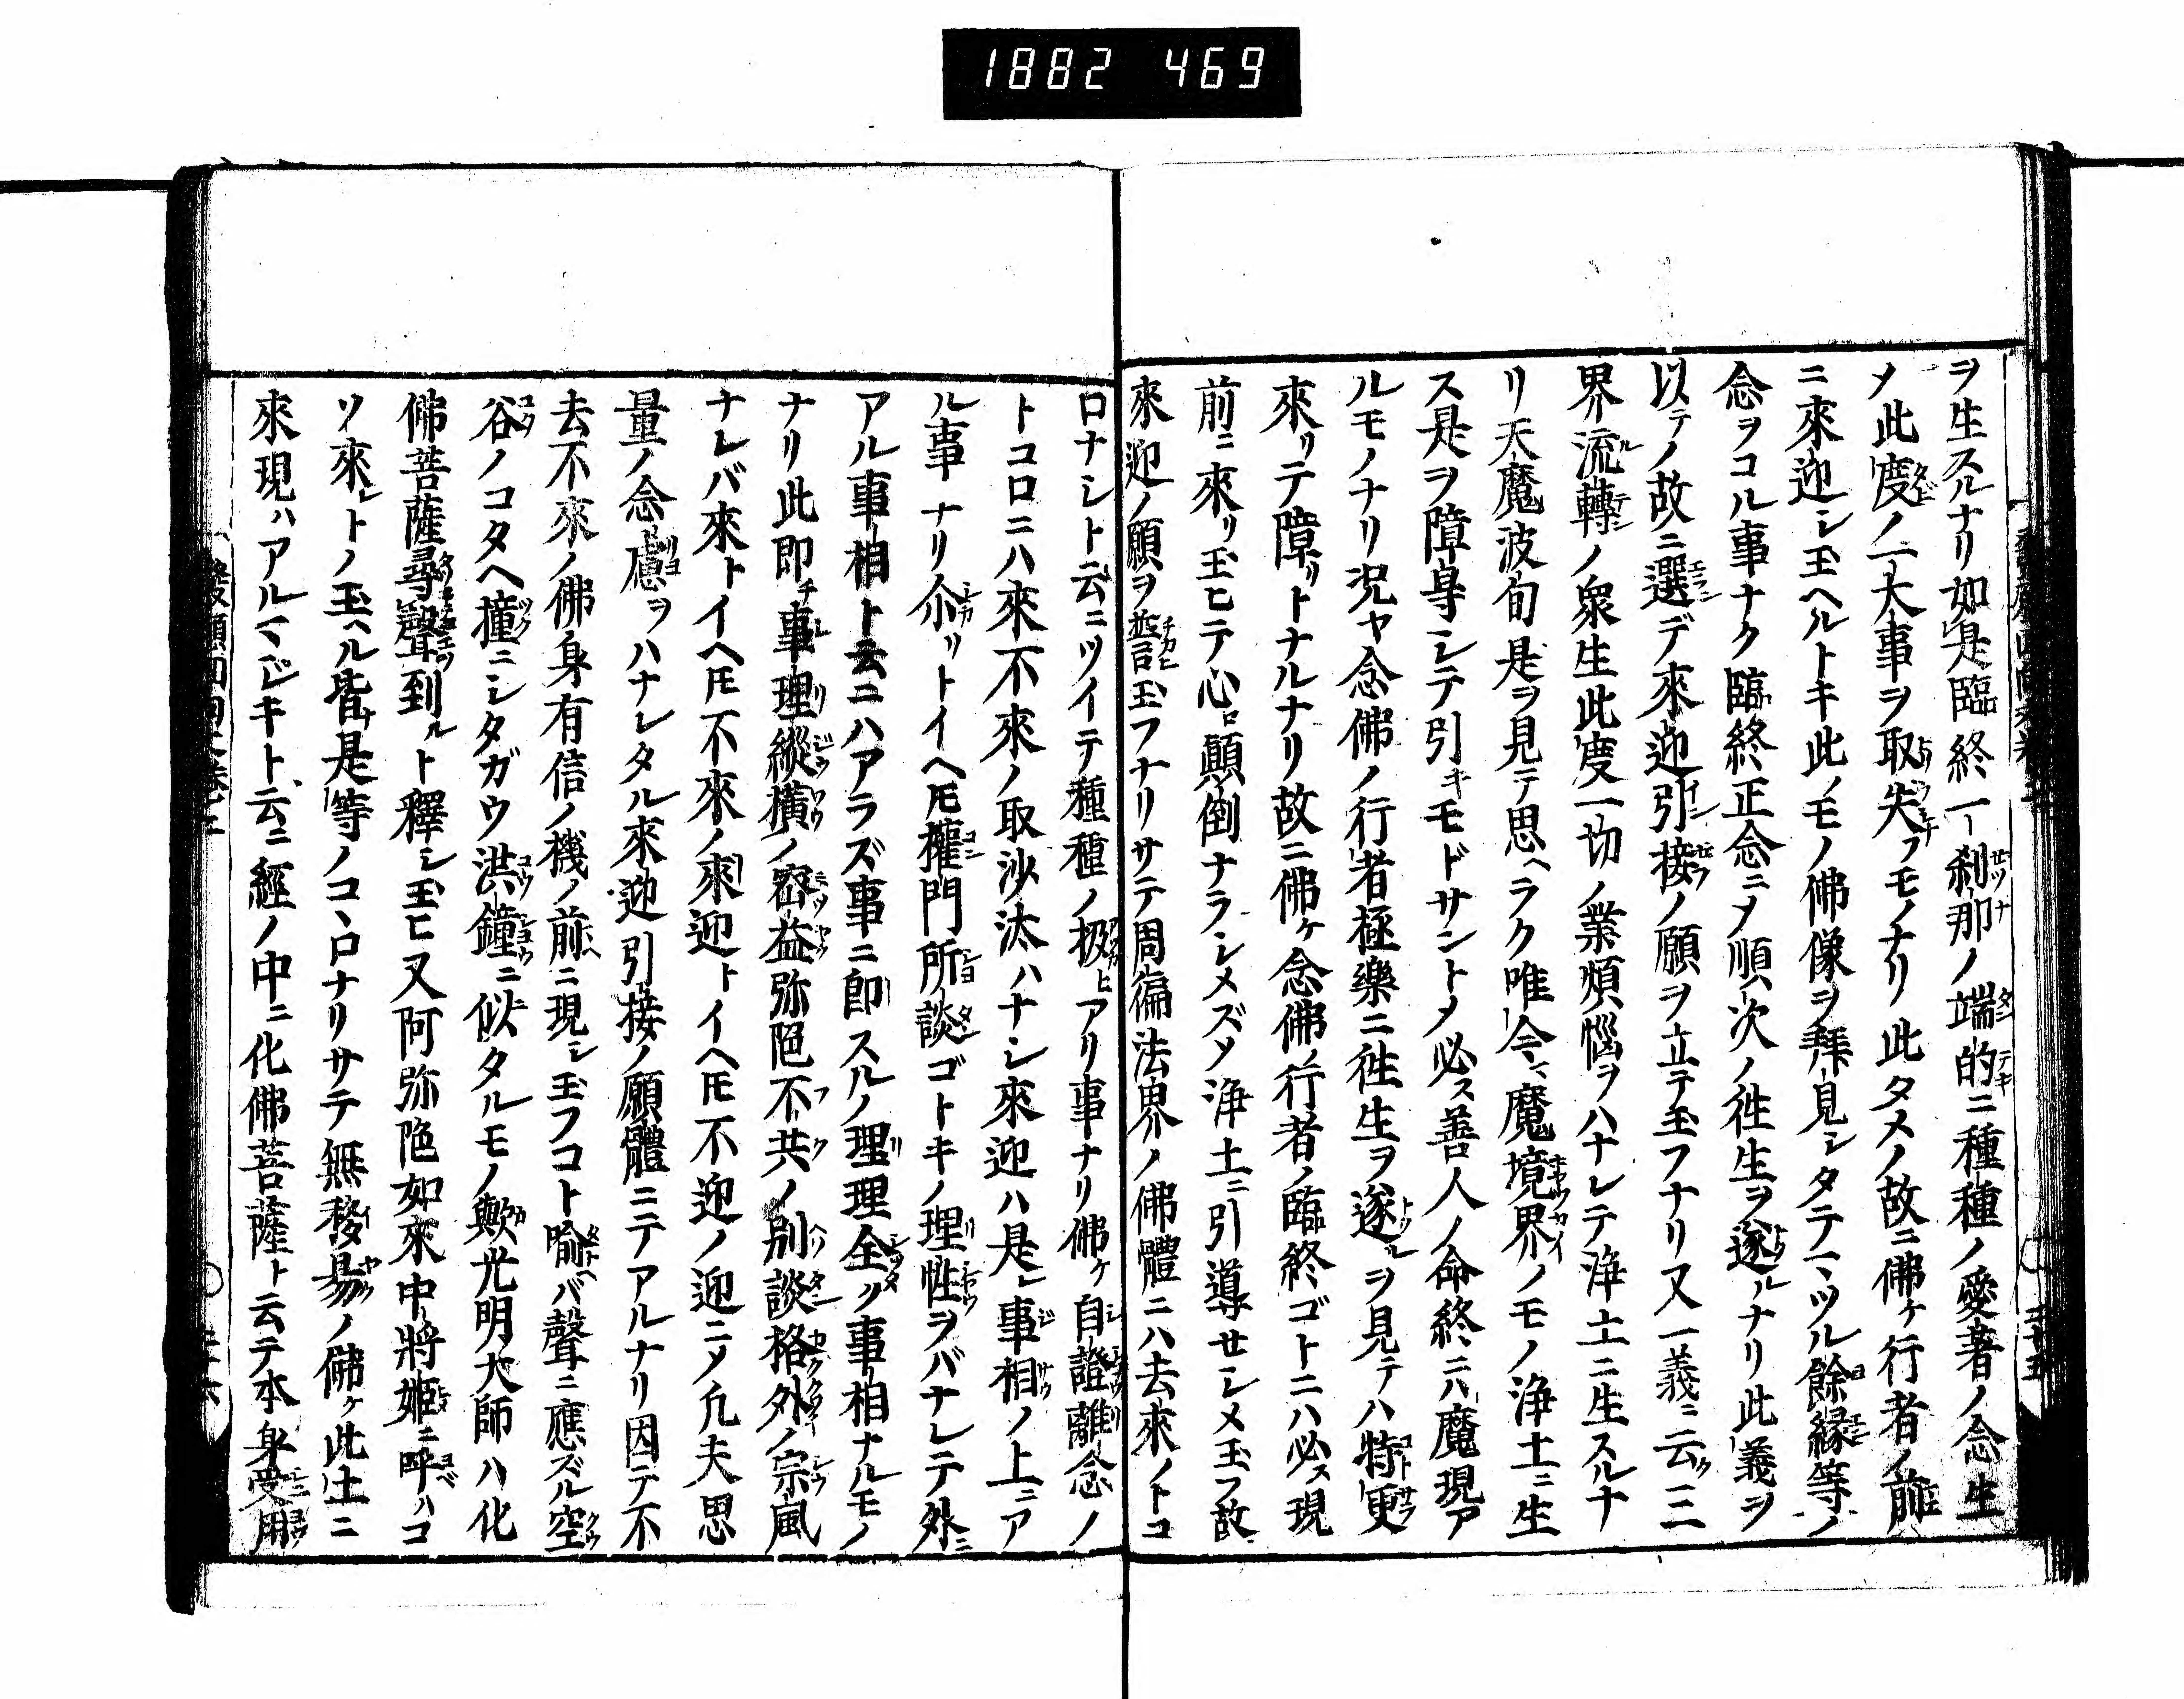 1882 469
ヲ生スルナリ如是臨終一刹那ノ端的ニ種種ノ愛著ノ念生
メ此度ノ一大事ヲ取失フモノナリ此タメノ故ニ佛ケ行者ノ前
ニ來迎シ玉ヘルトキ此ノモノ佛像ヲ拜見シタテマツル餘縁等ノ
念ヲコル事ナク臨終正念ニメ順次ノ徃生ヲ遂ルナリ此義ヲ
以テノ故ニ選デ來迎引接ノ願ヲ立テ玉フナリ又一義ニ云ク三
界流轉ノ衆生此度一切ノ業煩惱ヲハナレテ淨土ニ生スルナ
リ天魔波旬是ヲ見テ思ヘラク唯今マ魔境界ノモノ淨土ニ生
ス是ヲ障㝵シテ引キモドサントメ必ス善人ノ命終ニハ魔現ア
ルモノナリ况ヤ念佛ノ行者極樂ニ徃生ヲ遂ルヲ見テハ特更
來リテ障リトナルナリ故ニ佛ケ念佛ノ行者ノ臨終ゴトニハ必ス現
前ニ來リ玉ヒテ心ロ顛倒ナラシメズメ淨土ニ引導せシメ玉フ故
來迎ノ願ヲ誓玉フナリサテ周徧法界ノ佛體ニハ去來ノトコ
ロナシト云ニツイテ種種ノ扱ヒアリ事ナリ佛ケ自證離念ノ
トコロニハ來不來ノ取沙汰ハナシ來迎ハ是レ事相ノ上ニア
ル事ナリ尒リトイヘ𪜈權門所談ゴトキノ理性ヲバナレテ外ニ
アル事相ト云ニハアラズ事ニ即スルノ理理全ク事相ナルモノ
ナリ此即チ事理縱横ノ密益弥陀不共ノ別談格外ノ宗風
ナレバ來トイヘ𪜈不來ノ來迎トイヘ𪜈不迎ノ迎ニメ凡夫思
量ノ念慮ヲハナレタル來迎引接ノ願體ニテアルナリ因テ不
去不來ノ佛身有信ノ機ノ前ニ現シ玉フコト喩バ聲ニ應ズル空
谷ノコタヘ撞ニシタガウ洪鐘ニ似タルモノ歟光明大師ハ化
佛菩薩尋聲到ルト釋シ玉ヒ又阿弥陀如來中將姬ニ呼ハコ
ソ來レトノ玉ヘル皆ナ是等ノコヽロナリサテ無移易ノ佛ケ此土ニ
來現ハアルマジキト云ニ經ノ中ニ化佛菩薩ト云テ本身受用